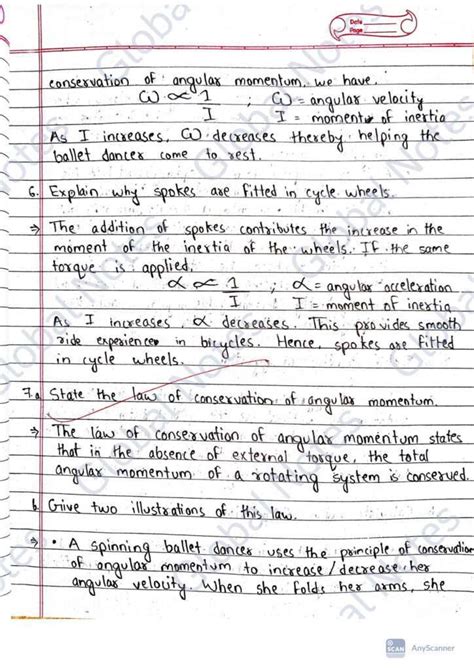 Date
Page
conservation of angular momentum, we have.
ω ∝ 1/I ; ω = angular velocity
I = moment of inertia
As I increases, ω decreases thereby helping the
ballet dancer come to rest.
6. Explain why spokes are fitted in cycle wheels.
⇒ The addition of spokes contributes the increase in the
moment of the inertia of the wheels. If the same
torque is applied,
α ∝ 1/I ; α = angular acceleration
I = moment of inertia
As I increases, α decreases. This provides smooth
ride experience in bicycles. Hence, spokes are fitted
in cycle wheels.
7.a State the law of conservation of angular momentum.
⇒ The law of conservation of angular momentum states
that in the absence of external torque, the total
angular momentum of a rotating system is conserved.
b. Give two illustrations of this law.
⇒ • A spinning ballet dancer uses the principle of conservation
of angular momentum to increase/decrease her
angular velocity. When she folds her arms, she
Global Notes
SCAN AnyScanner